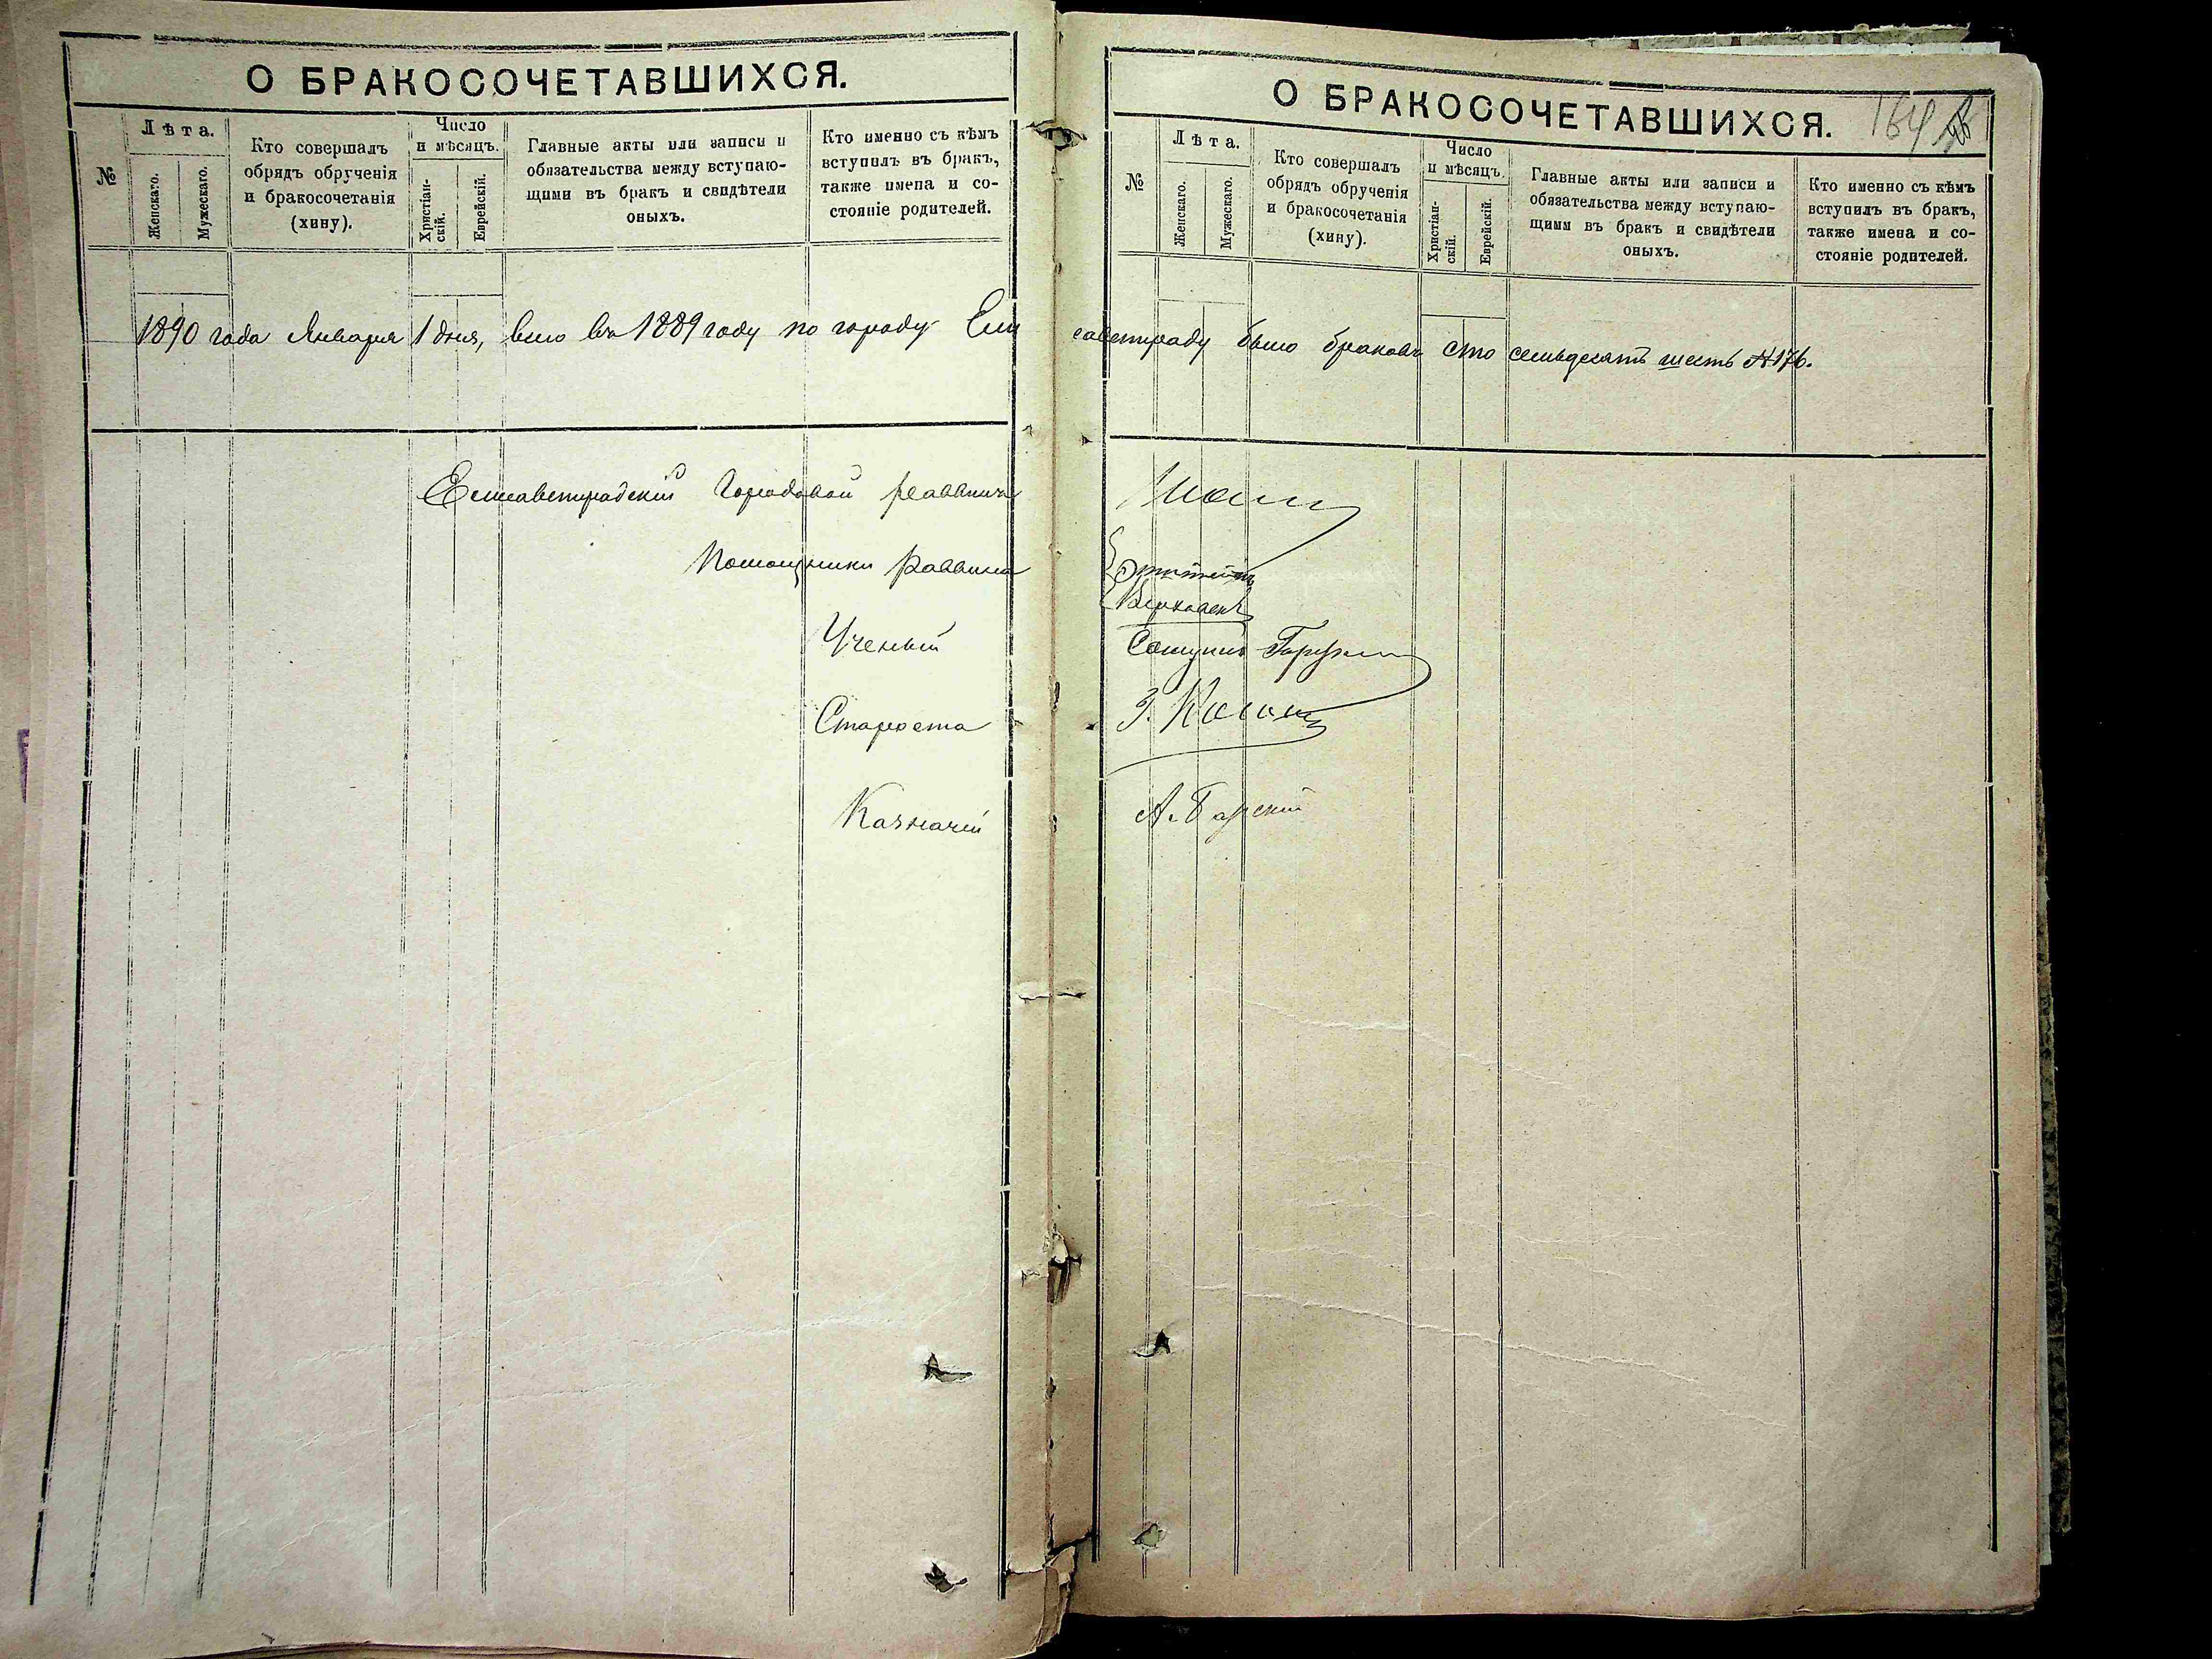 О БРАКОСОЧЕТАВШИХСЯ.
№
Лѣта.
Женскаго.
Мужескаго.
Кто совершалъ
обрядъ обрученія
и бракосочетанія
(хину).
Число
и мѣсяцъ.
Христіан-
скій.
Еврейскій.
Главные акты или записи и
обязательства между вступаю-
щими въ бракъ и свидѣтели
оныхъ.
Кто именно съ кѣмъ
вступилъ въ бракъ,
также имена и со-
стояніе родителей.
1890 года Января 1 дня, въ 1889 году по городу Ели
Елисаветградскій Городовой Раввинъ
Помощники Раввина
Ученый
Староста
Казначей
О БРАКОСОЧЕТАВШИХСЯ.
164
№
Лѣта.
Женскаго.
Мужескаго.
Кто совершалъ
обрядъ обрученія
и бракосочетанія
(хину).
Число
и мѣсяцъ.
Христіан-
скій.
Еврейскій.
Главные акты или записи и
обязательства между вступаю-
щими въ бракъ и свидѣтели
оныхъ.
Кто именно съ кѣмъ
вступилъ въ бракъ,
также имена и со-
стояніе родителей.
саветграду было браковъ сто семьдесятъ шесть №176.
А. Барскій